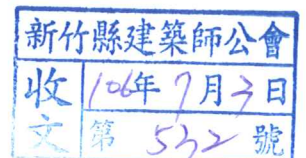 新竹縣建築師公會
收文 106年7月3日
第 532 號